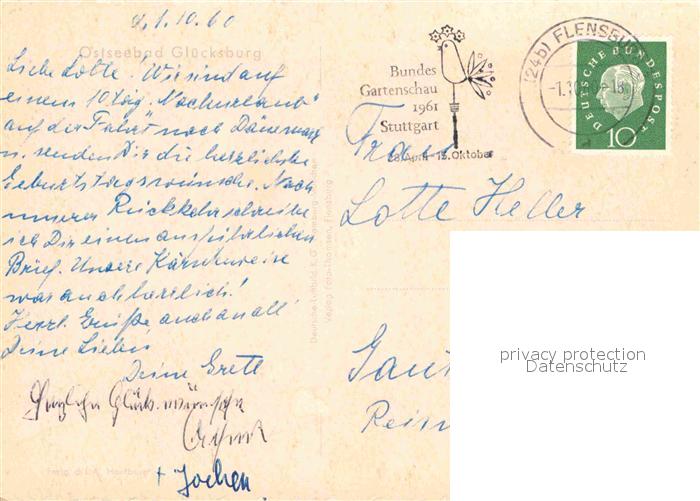 d. 1.10.60
Ostseebad Glücksburg
Liebe Lotte! Wir sind auf
einem 10 täg. "Nachurlaub"
auf der Fahrt nach Dänemark
u. senden Dir die herzlichste
Geburtstagswünsche. Nach
unserer Rückkehr schreibe
ich Dir einen ausführlichen
Brief. Unsere Kärntenreise
war auch herrlich!
Herzl. Grüße auch an all'
Deine Lieben
Deine Grete
Herzliche Glückwünsche
Arthur
+ Jochen
Bundes
Gartenschau
1961
Stuttgart
28. April - 15. Oktober
(24b) FLENSBURG
-1.10.60-18
DEUTSCHE BUNDESPOST
10
Frau
Lotte Heller
privacy protection
Datenschutz